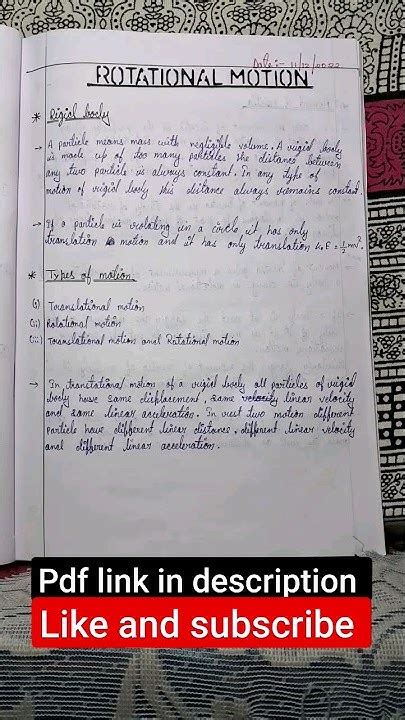 Date :- 11/12/2022
ROTATIONAL MOTION
* Rigid body
→ A particle means mass with negligible volume. A rigid body
is made up of too many particles the distance between
any two particle is always constant. In any type of
motion of rigid body this distance always remains constant.
→ If a particle is rotating in a circle, it has only
translation motion and it has only translation K.E = 1/2 mv².
* Types of motion.
(i) Translational motion
(ii) Rotational motion
(iii) Translational motion and Rotational motion
→ In translational motion of a rigid body all particles of rigid
body have same displacement, same velocity linear velocity
and same linear acceleration. In rest two motion different
particle have different linear distance, different linear velocity
and different linear acceleration.
Pdf link in description
Like and subscribe